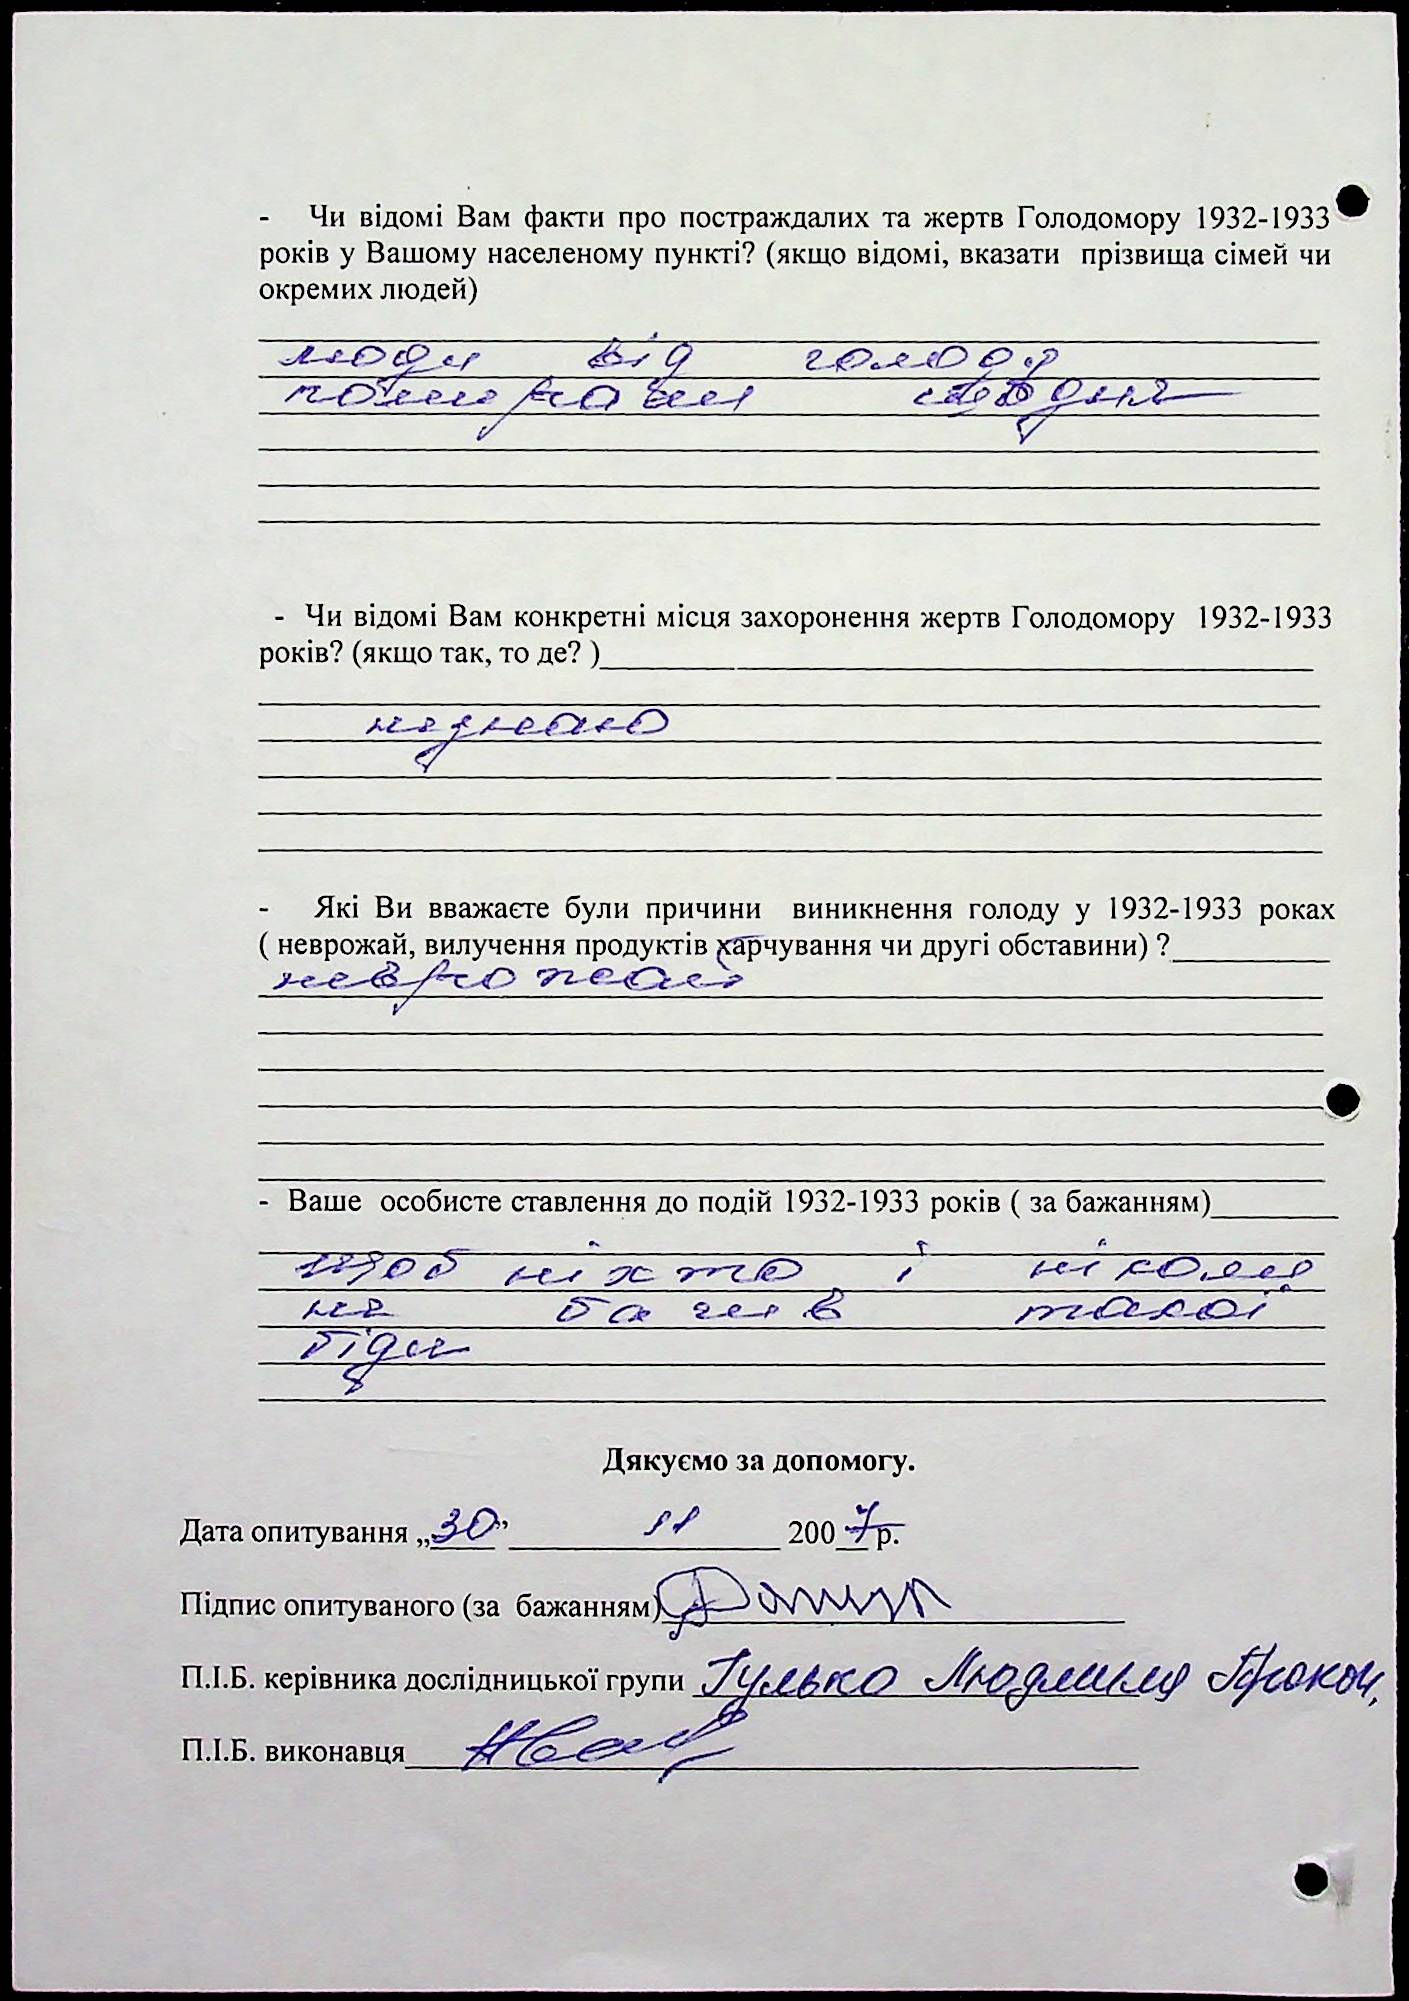 - Чи відомі Вам факти про постраждалих та жертв Голодомору 1932-1933
років у Вашому населеному пункті? (якщо відомі, вказати прізвища сімей чи
окремих людей)
люди від голоду
помирали щодня
- Чи відомі Вам конкретні місця захоронення жертв Голодомору 1932-1933
років? (якщо так, то де? )
незнаю
- Які Ви вважаєте були причини виникнення голоду у 1932-1933 роках
( неврожай, вилучення продуктів харчування чи другі обставини) ?
неврожай
- Ваше особисте ставлення до подій 1932-1933 років ( за бажанням)
щоб ніхто і ніколи
не бачив такої
біди
Дякуємо за допомогу.
Дата опитування „30” 11 2007р.
Підпис опитуваного (за бажанням)
П.І.Б. керівника дослідницької групи Гулько Людмила Прокоп.
П.І.Б. виконавця